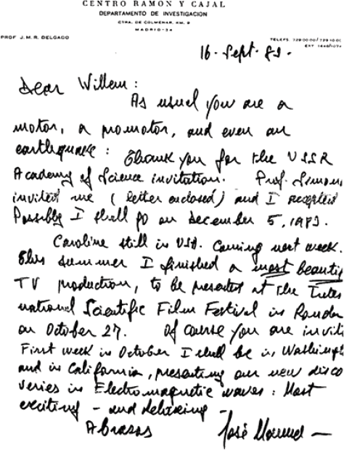 CENTRO RAMON Y CAJAL
DEPARTAMENTO DE INVESTIGACION
CTRA. DE COLMENAR, KM. 9
MADRID-34
PROF J. M. R. DELGADO
16. Sept. 83.
Dear Willem:
As usual you are a
motor, a promotor, and even an
earthquake: Thank you for the USSR
Academy of Science invitation. Prof. Simon
invited me (letter enclosed) and I accepted
Possibly I shall go on December 5, 1983.
Caroline still in USA. Coming next week.
This summer I finished a most beautif
TV production, to be presented at the Inter
national Scientific Film Festival in
on October 27. Of course you are invite
First week in October I shall be in Washingt
and in California, presenting our new disco
veries in Electromagnetic waves: Most
exciting - and delivering -
Abrazos José Manuel -